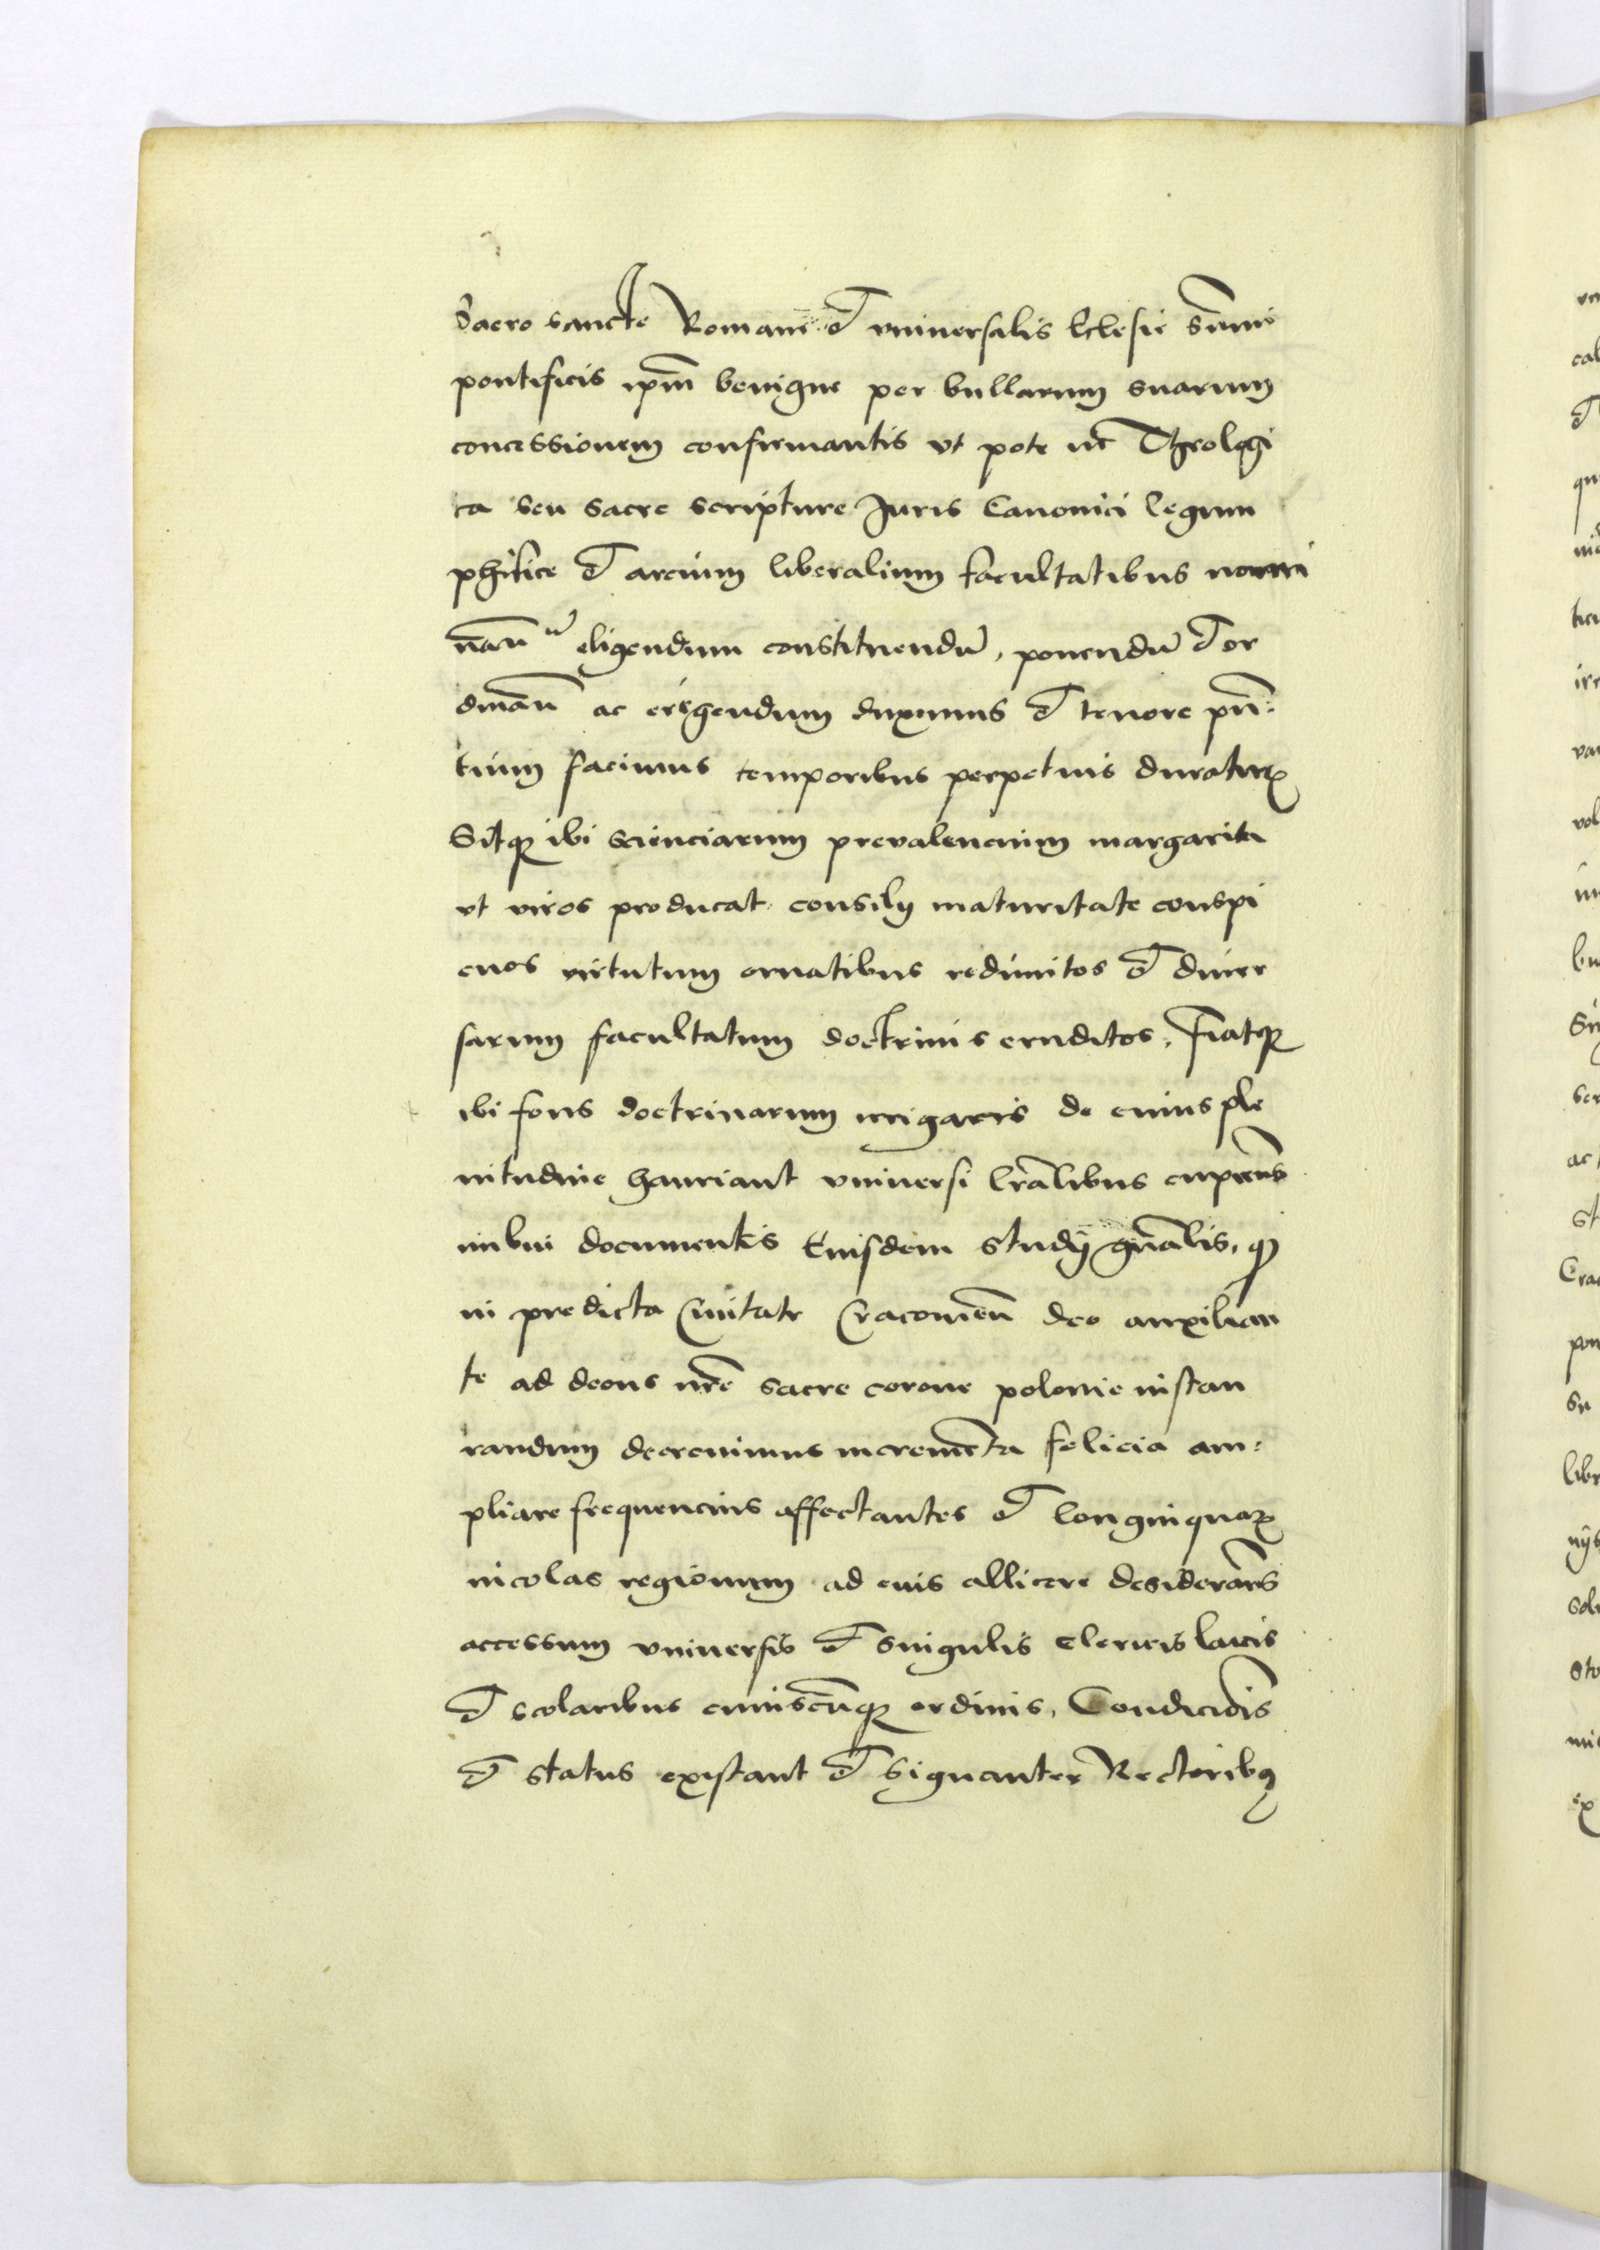 Sacro sancte Romane et vniuersalis Eclesie sũmi
pontificis ip̃m benigne per bullarum suarum
concessionem confirmantis vt pote in Theologi
ca seu sacre scripture Juris Canonici legum
phisice et arcium liberalium facultatibus nomi
nãn eligendum constituendũ, ponendũ et or
dinãn ac erigendum duximus et tenore pñ:
tium facimus temporibus perpetuis duraturꝝ
Sitqꝫ ibi scienciarum preualencium margarita
vt viros producat consilij maturitate conspi
cuos virtutum ornatibus redimitos et diuer
sarum facultatum doctrinis eruditos, Fiatqꝫ
ibi fons doctrinarum irriguus de cuius ple
nitudine hauriant vniuersi lr̃alibus cupientes
imbui documentis Eiusdem studij gñalis, qꝫ
in predicta Ciuitate Cracouien̄ deo auxilian
te ad decus nr̃e sacre corone polonie instau
randum decreuimus incremẽta felicia am:
pliare frequencius affectantes et longinquaꝝ
incolas regionum ad eius allicere desiderañs
accessum vniuersis et singulis clericis laicis
et scolaribus cuiuscũqꝫ ordinis, Condiciõis
et status existant et signanter Rectoribꝯ
ca
et
qu